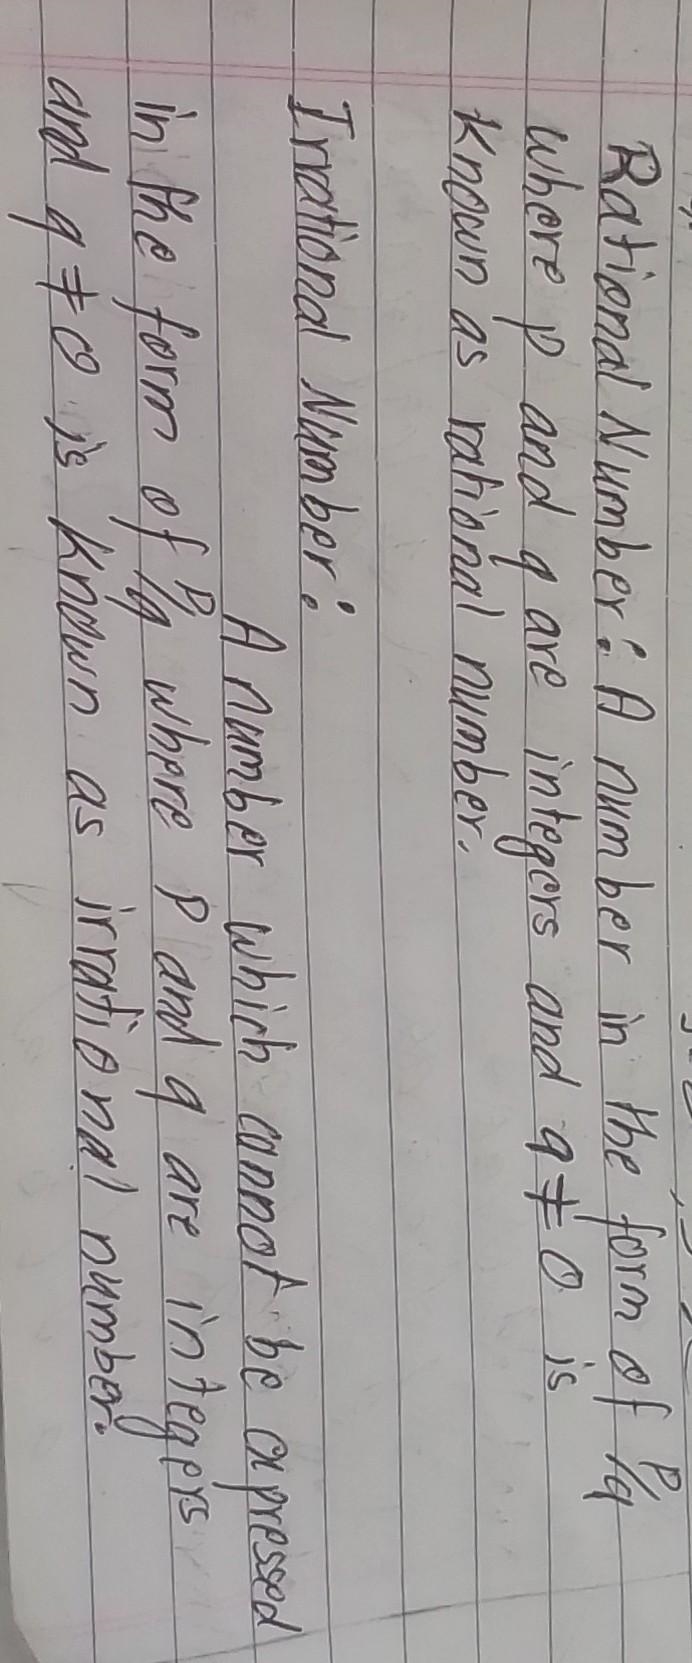 Rational Number: A number in the form of P/q
where p and q are integers and q ≠ 0 is
known as rational number.
Irrational Number:
A number which cannot be expressed
in the form of P/q where P and q are integers
and q ≠ 0 is known as irrational number.